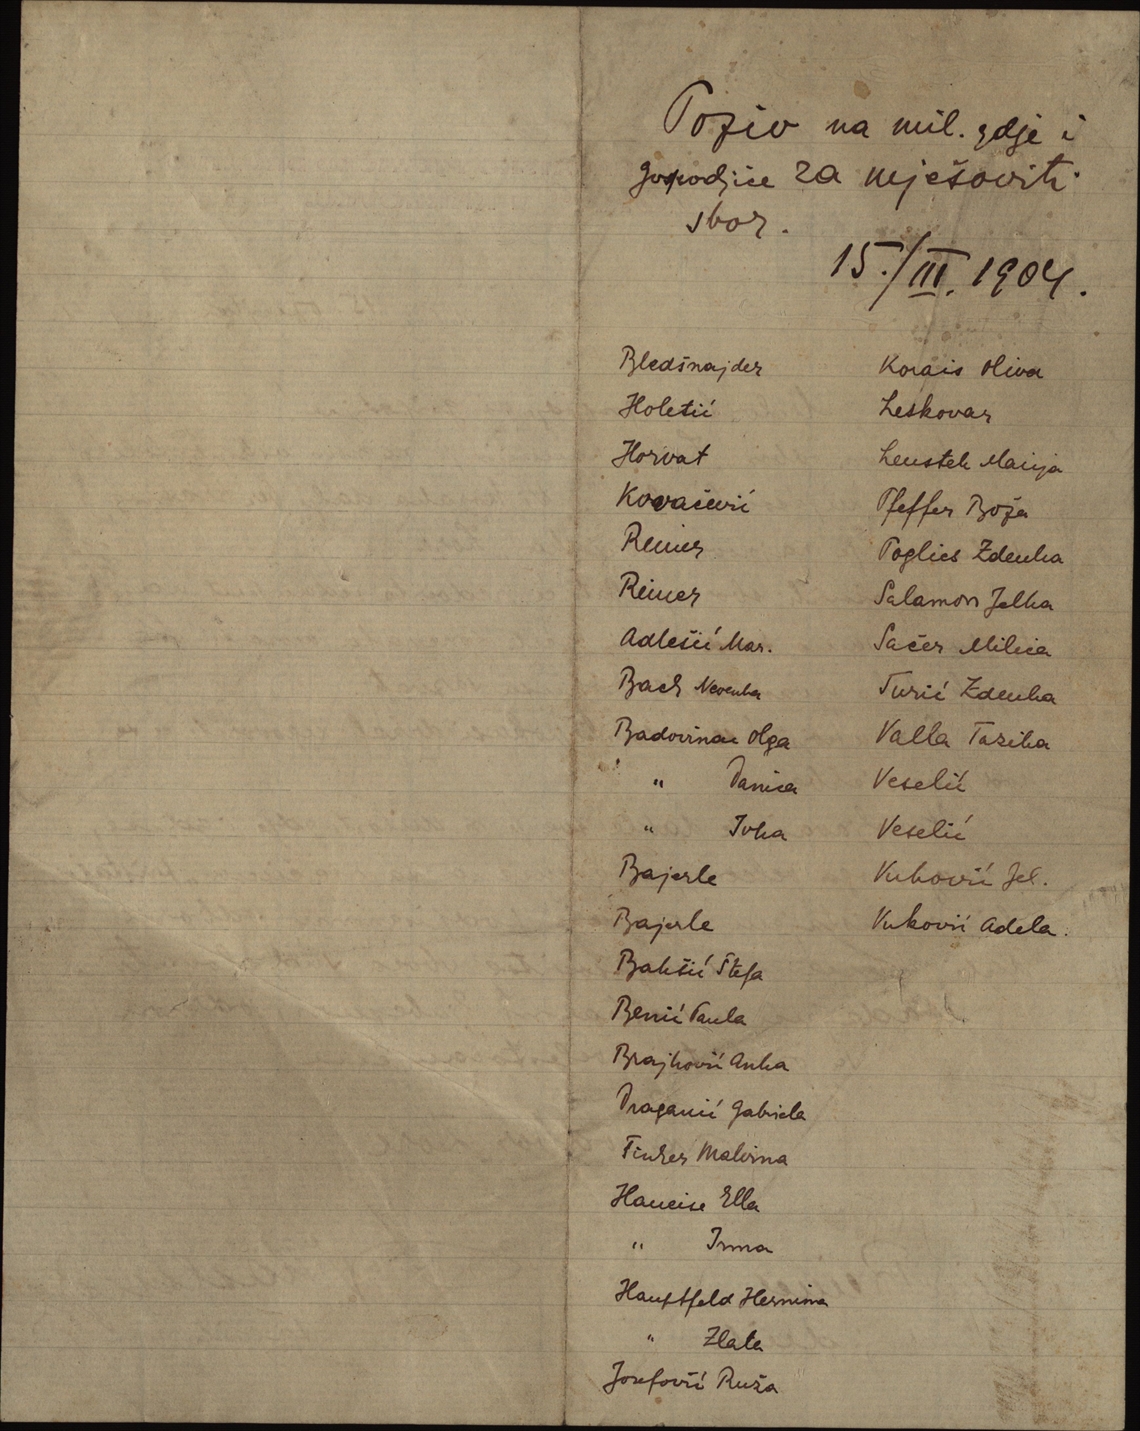 Poziv na mil. gdje i
gospodjice za mješoviti
sbor.
15./III. 1904.
Bledšnajder
Holetić
Horvat
Kovačević
Reiner
Reiner
Adlešić Mar.
Bach Nevenka
Badovinac Olga
" Danica
" Ivka
Bajerle
Bajerle
Bališić Štefa
Benić Paula
Brajković Anka
Draganić Gabriela
Malvina
Ella
" Irma
Hauptfeld Hermina
" Zlata
Josefović Ruža
Korais Oliva
Leskovar
Leustek Marija
Pfeffer Boža
Poglies Zdenka
Salamon Jelka
Sačer Milica
Turić Zdenka
Valla Tazika
Veselić
Veselić
Vuković Jel.
Vuković Adela.